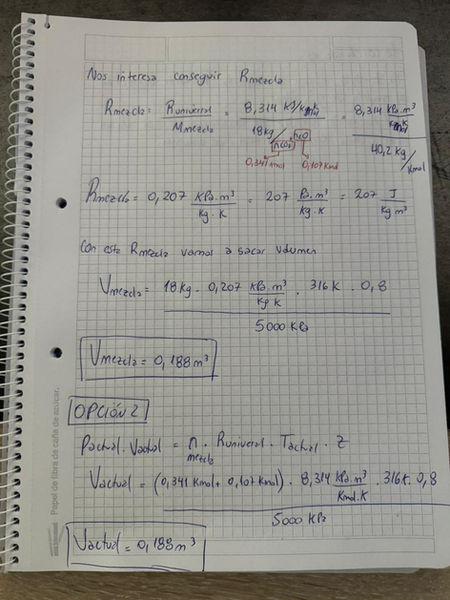 Nos interesa conseguir Rmezcla
Rmezcla = Runiversal / Mmezcla = 8,314 KJ/Kmol K / 18kg / nCO2 + nCO = 8,314 KPa.m³/Kmol.K / 40,2 Kg/Kmol
0,341 Kmol 0,107 Kmol
Rmezcla = 0,207 KPa.m³/Kg.K = 207 Pa.m³/Kg.K = 207 J/Kg m³
Con esta Rmezcla vamos a sacar Volumen
Vmezcla = 18Kg . 0,207 KPa.m³/Kg K . 316K . 0,8 / 5000 KPa
Vmezcla = 0,188 m³
OPCIÓN 2
Pactual . Vactual = n mezcla . Runiversal . Tactual . Z
Vactual = (0,341 Kmol + 0,107 Kmol) . 8,314 KPa.m³/Kmol.K . 316K . 0,8 / 5000 KPa
Vactual = 0,188 m³
Papel de fibra de caña de azúcar.